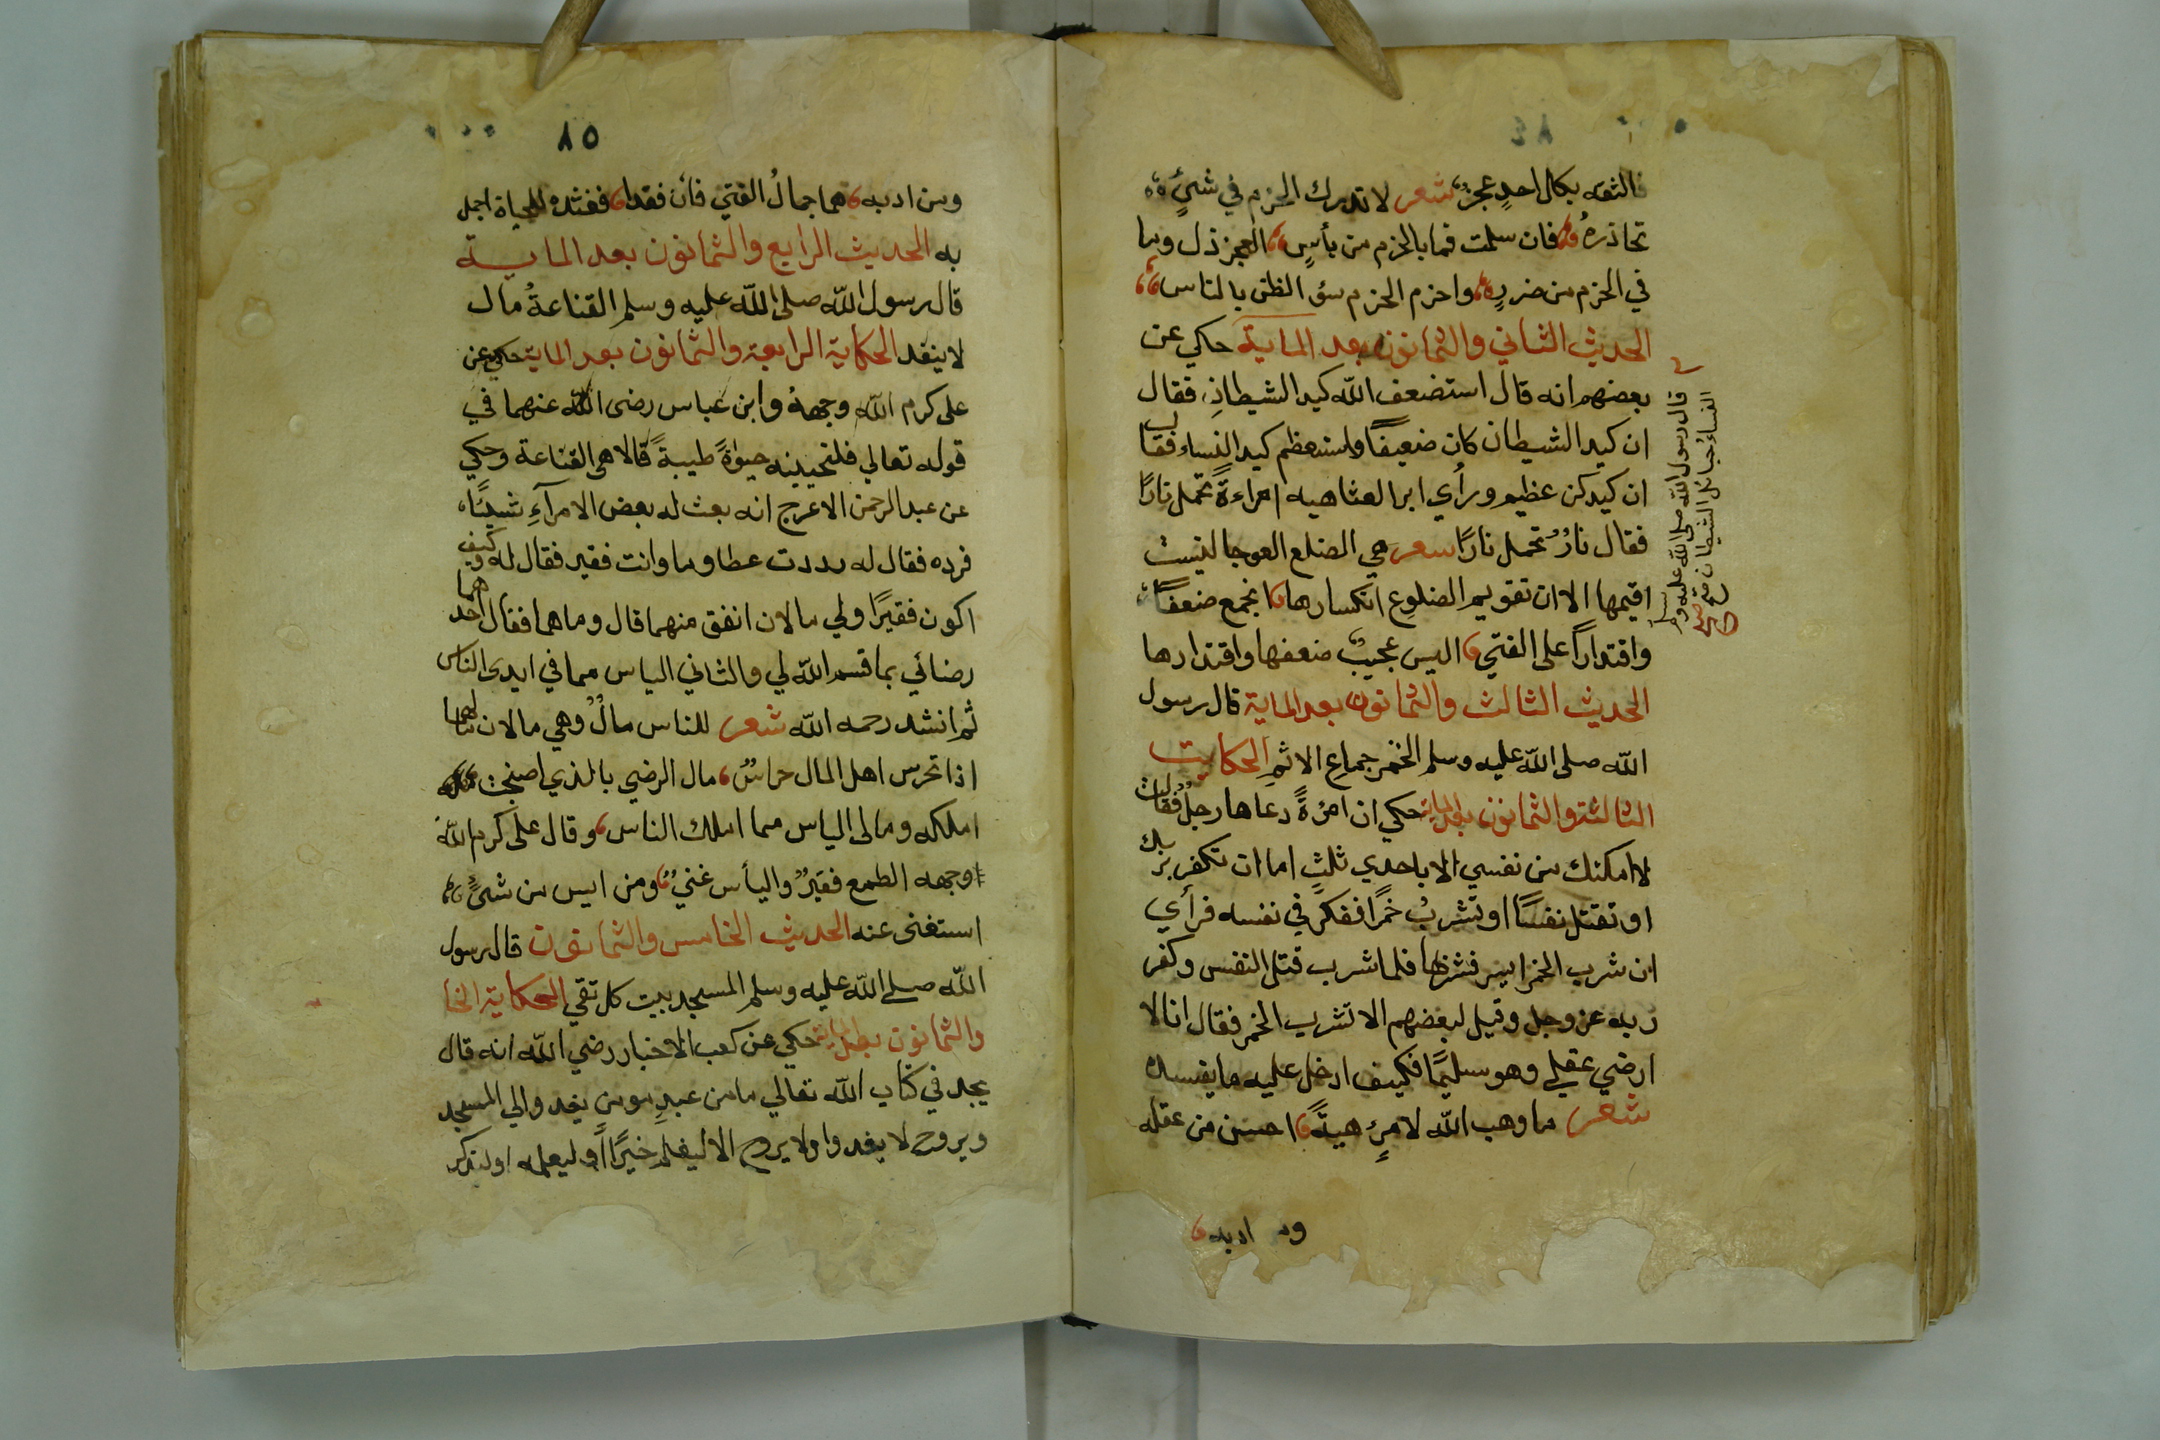 ٨٤
فالثقه بكل احدٍ عجزٌ شعر لا تدرك الحزم في شيءٍ
تحاذرهُ فان سلمت فما بالحزم من بأسٍ العجز ذل وما
في الحزم من ضررٍ واحزم الحزم سؤ الظن بالناس
الحديث الثاني والثمانون بعد الماية حكي عن
بعضهم انه قال استضعف الله كيد الشيطان فقال
ان كيد الشيطان كان ضعيفًا واستعظم كيد النساء فقال
ان كيدكن عظيم ورأي ابو العتاهيه امراءةً تحمل نارًا
فقال نارٌ تحمل نارًا شعر هي الضلع العوجا لليست
اقيمها الا ان تقويم الضلوع انكسارها اتجمع ضعفًا
واقتدارًا على الفتي اليس عجيبٌ ضعفها واقتدارها
الحديث الثالث والثمانون بعد الماية قال رسول
الله صلى الله عليه وسلم الخمر جماع الاثم الحكايت
الثالثة والثمانون بعد الماية حكي ان امرءةً دعاها رجلٌ فقالت
لا امكنك من نفسي الا باحدي ثلثٍ اما ان تكفر بربك
او تقتل نفسًا او تشربُ خمرًا ففكر في نفسه فرأي
ان شرب الخمر ايسر فشربها فلما شرب قتل النفس وكفر
ربه عز وجل وقيل لبعضهم الا تشرب الخمر فقال انا لا
ارضي عقلي وهو سليمًا فكيف ادخل عليه ما يفسده
شعر ما وهب الله لامرءٍ هبةً احسن من عقله
ومن ادبه
قال رسول الله صلى الله عليه وسلم
النساء حبائل الشيطان صح
٨٥
ومن ادبه هما جمالُ الفتي فان فقدا ففقده للحياة اجمل
به الحديث الرابع والثمانون بعد الماية
قال رسول الله صلى الله عليه وسلم القناعةُ مال
لا ينفد الحكاية الرابعة والثمانون بعد الماية حكي عن
على كرم الله وجههُ وابن عباس رضى الله عنهما في
قوله تعالي فلنحيينه حيوٰةً طيبةً قالا هى القناعة وحكي
عن عبد الرحمن الاعرج انه بعث له بعض الامرآءِ شيئًا
فرده فقال له رددت عطا وما وانت فقير فقال له وكيف
اكون فقيرًا ولي مالان انفق منهما قال وما هما فقال احدهما
رضائي بما قسم الله لي والثاني الياس مما في ايدى الناس
ثم انشد رحمه الله شعر للناس مالٌ وهي مالان لهما
اذا تحرس اهل المال حراسٌ مال الرضي بالذي اصبحت
املكه ومالى الياس مما املك الناس وقال على كرم الله
وجهه الطمع فقيرٌ واليأس غنيٌ ومن ايس من شيءٍ
استغنى عنه الحديث الخامس والثمانون قال رسول
الله صلى الله عليه وسلم المسجد بيت كل تقي الحكاية الخا
والثمانون بعد الماية حكي عن كعب الاخبار رضي الله انه قال
يجد في كتاب الله تعالي ما من عبدٍ مومنٍ يغدو الي المسجد
ويروح لا يغدوا ولا يروح الا ليفلم خيرًا أو ليعلمه او ليذكر